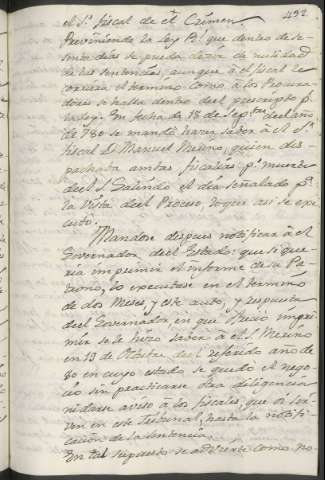 432
el S.r fiscal de él Crimen.
Previniendo la Ley R.l que dentro de se-
senta dias se pueda decir de nulidad
de las sentencias, aunque à el fiscal le
corriera el termino como à los Procura
dores se halla dentro del prescripto p.r
la Ley. En fecha de 18 de Sep.bre del año
de 780 se mandó haria saber à el S.r
fiscal D. Manuel Merino, quien des-
pachaba ambas fiscalias p.r muerte
del S. Galindo el dia señalado p.a
la Vista del Proceso, lo que asi se exe
cutó.
Mandose despues notificar à el
Governador del Estado: que si que-
ria imprimir el informe de su Pa-
trono, lo executase en el termino
de dos Meses, y este auto, y respuesta
del Governador, en que pidio impri-
mir se le hizo saber à el S. Merino
en 13 de Octubre del referido año de
80 en cuyo estado se quedó el nego-
cio sin practicarse otra diligencia
ni darse aviso à los fiscales, que oi sir-
ven en este Tribunal, hasta la notifi-
cacion de la Sentencia.
En tal supuesto se advierte como no-